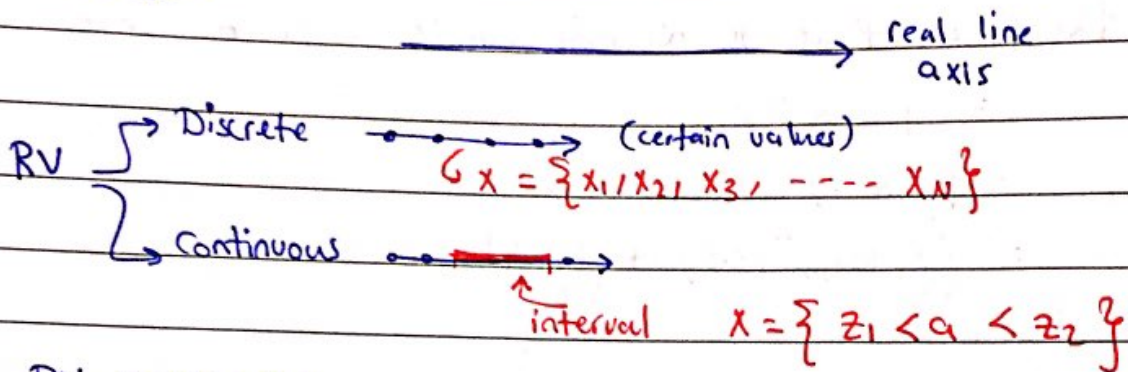 real line
axis
RV
Discrete (certain values)
X = {x1, x2, x3, ---- XN}
Continuous
interval X = { z1 < a < z2 }